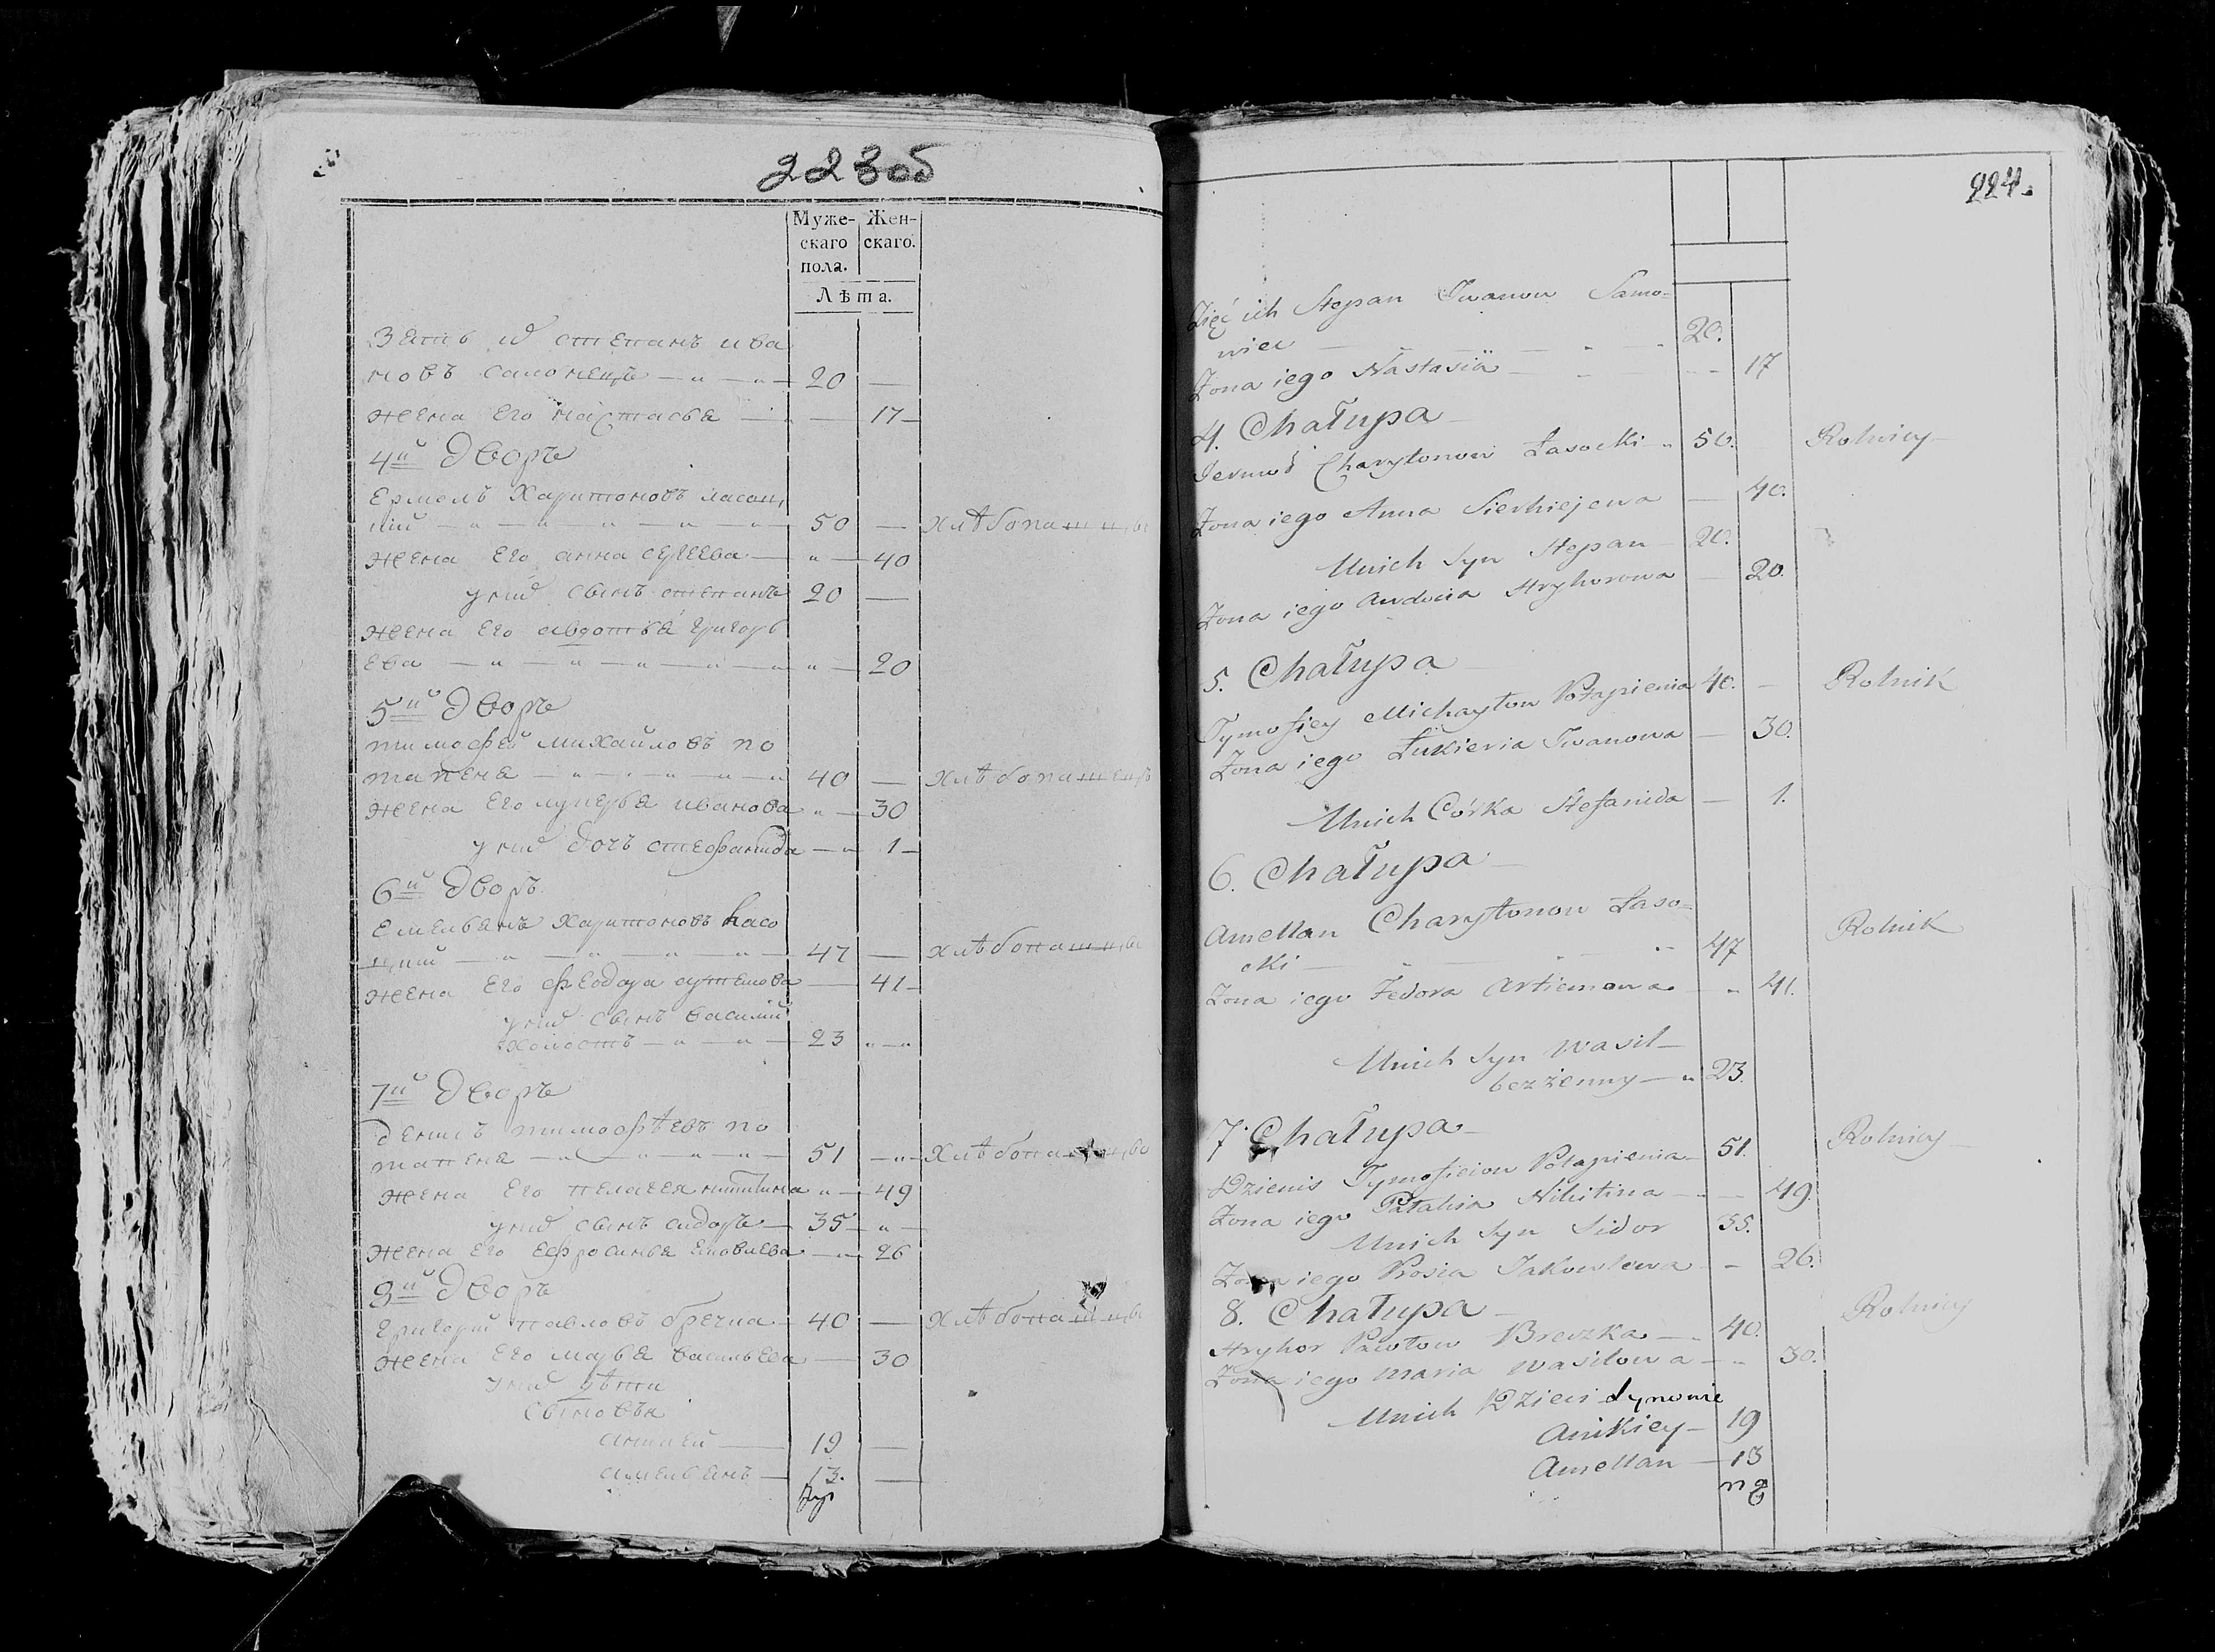 223об
Муже- Жен-
скаго скаго.
пола.
Лѣта.
Зять ихъ степанъ ива
новъ самонецъ — 20 —
жена его настасья — 17
4й дворъ
Ермолъ Харитоновъ ласоц,
кій — 50 — хлѣбопашцы
жена его анна сергеева — 40
у нихъ сынъ степанъ 20 —
жена его авдотья григорь
ева — 20
5й дворъ
тимофей михайловъ по
тапеня — 40 — хлѣбопашецъ
жена его лукерья иванова — 30
у нихъ дочь стефанида — 1
6й дворъ
Емельянъ Харитоновъ ласо
цкий — 47 — хлѣбопашцы
жена его феодора артемова — 41
у нихъ сынъ василий
холостъ — 23
7й дворъ
денисъ тимофѣевъ по
тапеня — 51 — Хлѣбопашцы
жена его пелагея никитина — 49
у нихъ сынъ сидоръ — 35
жена его ефросинья яковлева — 26
8й дворъ
григорий павловъ бречка — 40 — хлѣбопашцы
жена его марья васильева — 30
у нихъ дѣти
сыновья
аникей — 19 —
амельянъ — 13. —
224.
Zięć ich Stepan Iwanow Samo-
niec — 20.
Żona iego Nastasiia — 17
4. Chałupa
Jermoł Charytonow Łasocki 50. Rolnicy
Żona iego Anna Sierhiejewa — 40.
U nich Syn Stepan 20.
Żona iego Audocia Hryhorowa — 20.
5. Chałupa
Tymofiey Michayłow Potapienia 40. — Rolnik
Żona iego Łukieria Iwanowa — 30.
U nich Córka Stefanida — 1.
6. Chałupa
Amellan Charytonow Łaso-
cki — 47 Rolnik
Żona iego Fedora Artiemowa — 41.
U nich Syn Wasil
bezżenny — 23.
7. Chałupa
Dzienis Tymofieiow Potapienia 51. Rolnicy
Żona iego Pałahia Nikitina — 49.
U nich Syn Sidor 35.
Żona iego Prosia Jakowlewa — 26.
8. Chałupa
Hryhor Pawłow Breczka — 40. Rolnicy
Żona iego Maria Wasilowa — 30.
U nich Dzieci Synowie
Anikiey — 19
Amellan — 13